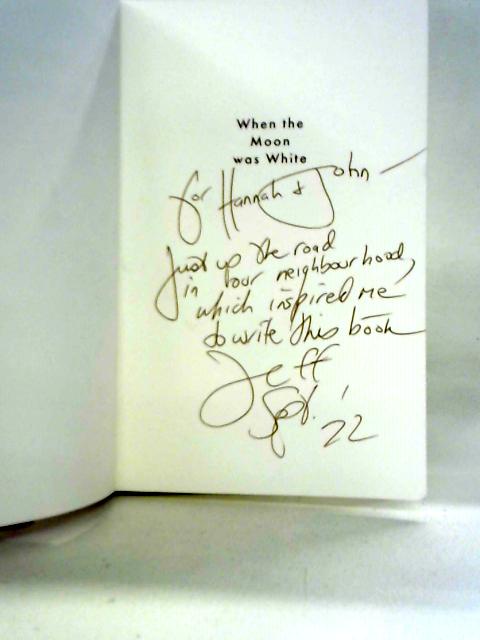 When the
Moon
was White
for Hannah & John —
Just up the road
in our neighbourhood,
which inspired me
to write this book
Jeff
Sept. '22